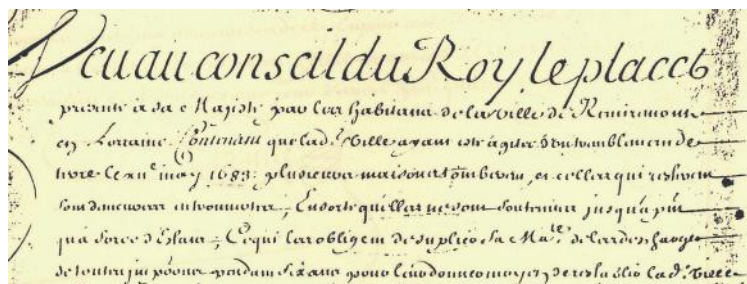 Veu au conseil du Roy le placet
presenté a sa Majesté par les habitans de la ville de Remiremont
en Lorraine Contenant que lad.e Ville ayant esté agitée d'un tremblement de
terre le may 1683. plusieurs maisons tomberent, et celles qui resterent
sont demeurées ; Ensorte qu'elles ne sont soutenues jusqu'a
qu'a force d'Estaies ; Ce qui les oblige de suplier Sa Ma.té de les descharger
de toutes pendant six ans pour leur donner moyen de restablir lad.e Ville